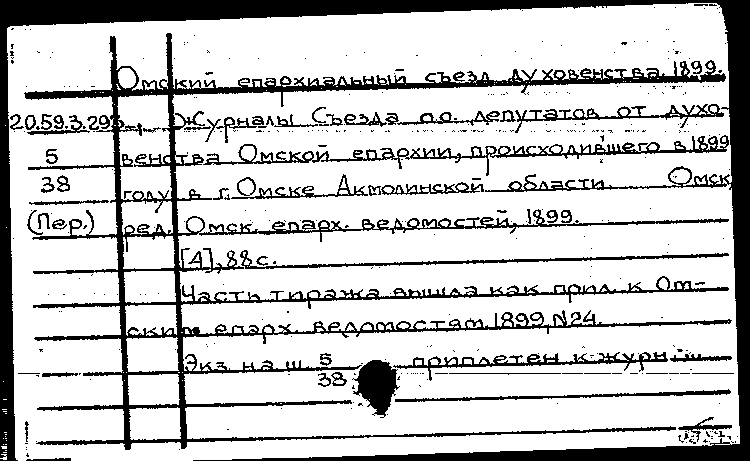 Омский епархиальный съезд духовенства. 1899.
20.59.3.295, Журналы Съезда о.о. депутатов от духо-
5 венства Омской епархии, происходившего в 1899
38 году в г. Омске Акмолинской области. Омск,
(Пер.) ред. Омск. епарх. ведомостей, 1899.
[4], 88 с.
Часть тиража вышла как прил. к Ом-
ским епарх. ведомостям. 1899, N24.
Экз на ш. 5 приплетен к журн.
38